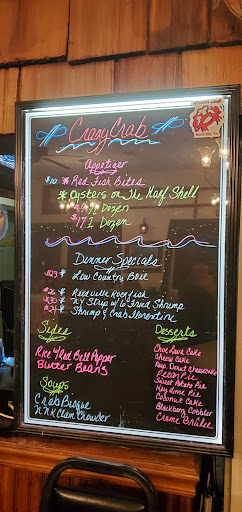 Crazy Crab
Appetizer
$10 * Red Fish Bites
* Oysters on The Half Shell
1/2 Dozen
$17 1 Dozen
Dinner Specials
Low Country Boil
NY Strip w/ 6 Fried Shrimp
Shrimp & Crab Florentine
Sides
Desserts
Rice & Red Bell Pepper
Butter Beans
Choc Lava Cake
Cheese Cake
Deep Donut Cheesecake
Pecan Pie
Sweet Potato Pie
Key Lime Pie
Coconut Cake
Blackberry Cobbler
Creme Brulee
Soups
Crab Bisque
Clam Chowder